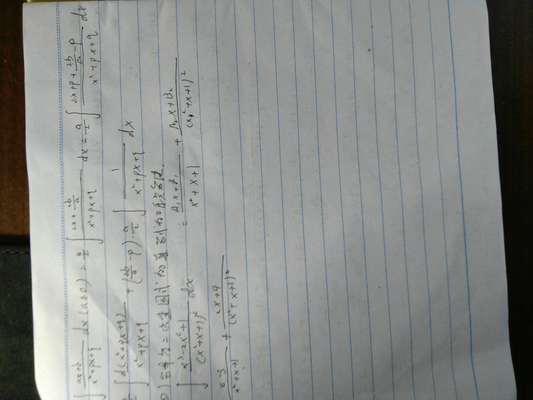 ∫ (ax+b)/(x²+px+q) dx (a≠0) = a/2 ∫ (2x + 2b/a)/(x²+px+q) dx = a/2 ∫ (2x+p+ 2b/a -p)/(x²+px+q) dx
∫ d(x²+px+q)/(x²+px+q) + (2b/a -p)·a/2 ∫ 1/(x²+px+q) dx
∫ (x³-2x²+1)/(x²+x+1)² dx = (A₁x+B₁)/(x²+x+1) + (A₂x+B₂)/(x²+x+1)²
(x-3)/(x²+x+1) + (2x+4)/(x²+x+1)²